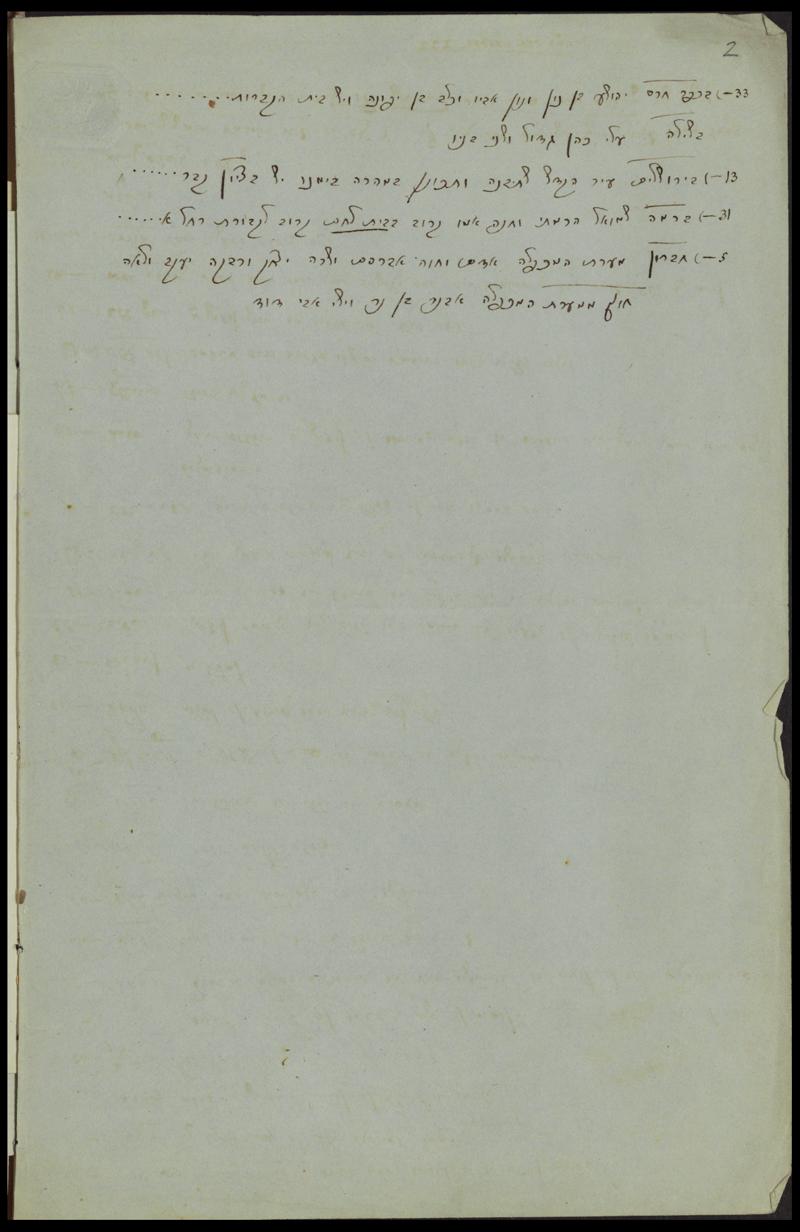 2
33 –) בכפר חרס יהושע בן נון ונון אביו וכלב בן יפונה ויש בית הקברות . . . . . . . .
בשילה עלי כהן גדול ושני בניו
13 –) בירושלים עיר הקדש תבנה ותכונן במהרה בימנו יש בציון קבר . . . . . .
31 –) ברמה שמואל הרמתי וחנה אמו קרוב בבית לחם קרוב לקבורת רחל א . . . . .
5 –) חברון מערת המכפלה אדם וחוה אברהם ושרה יצחק ורבקה יעקב ולאה
חוץ ממערת המכפלה אבנר בן נר וישי אבי דוד